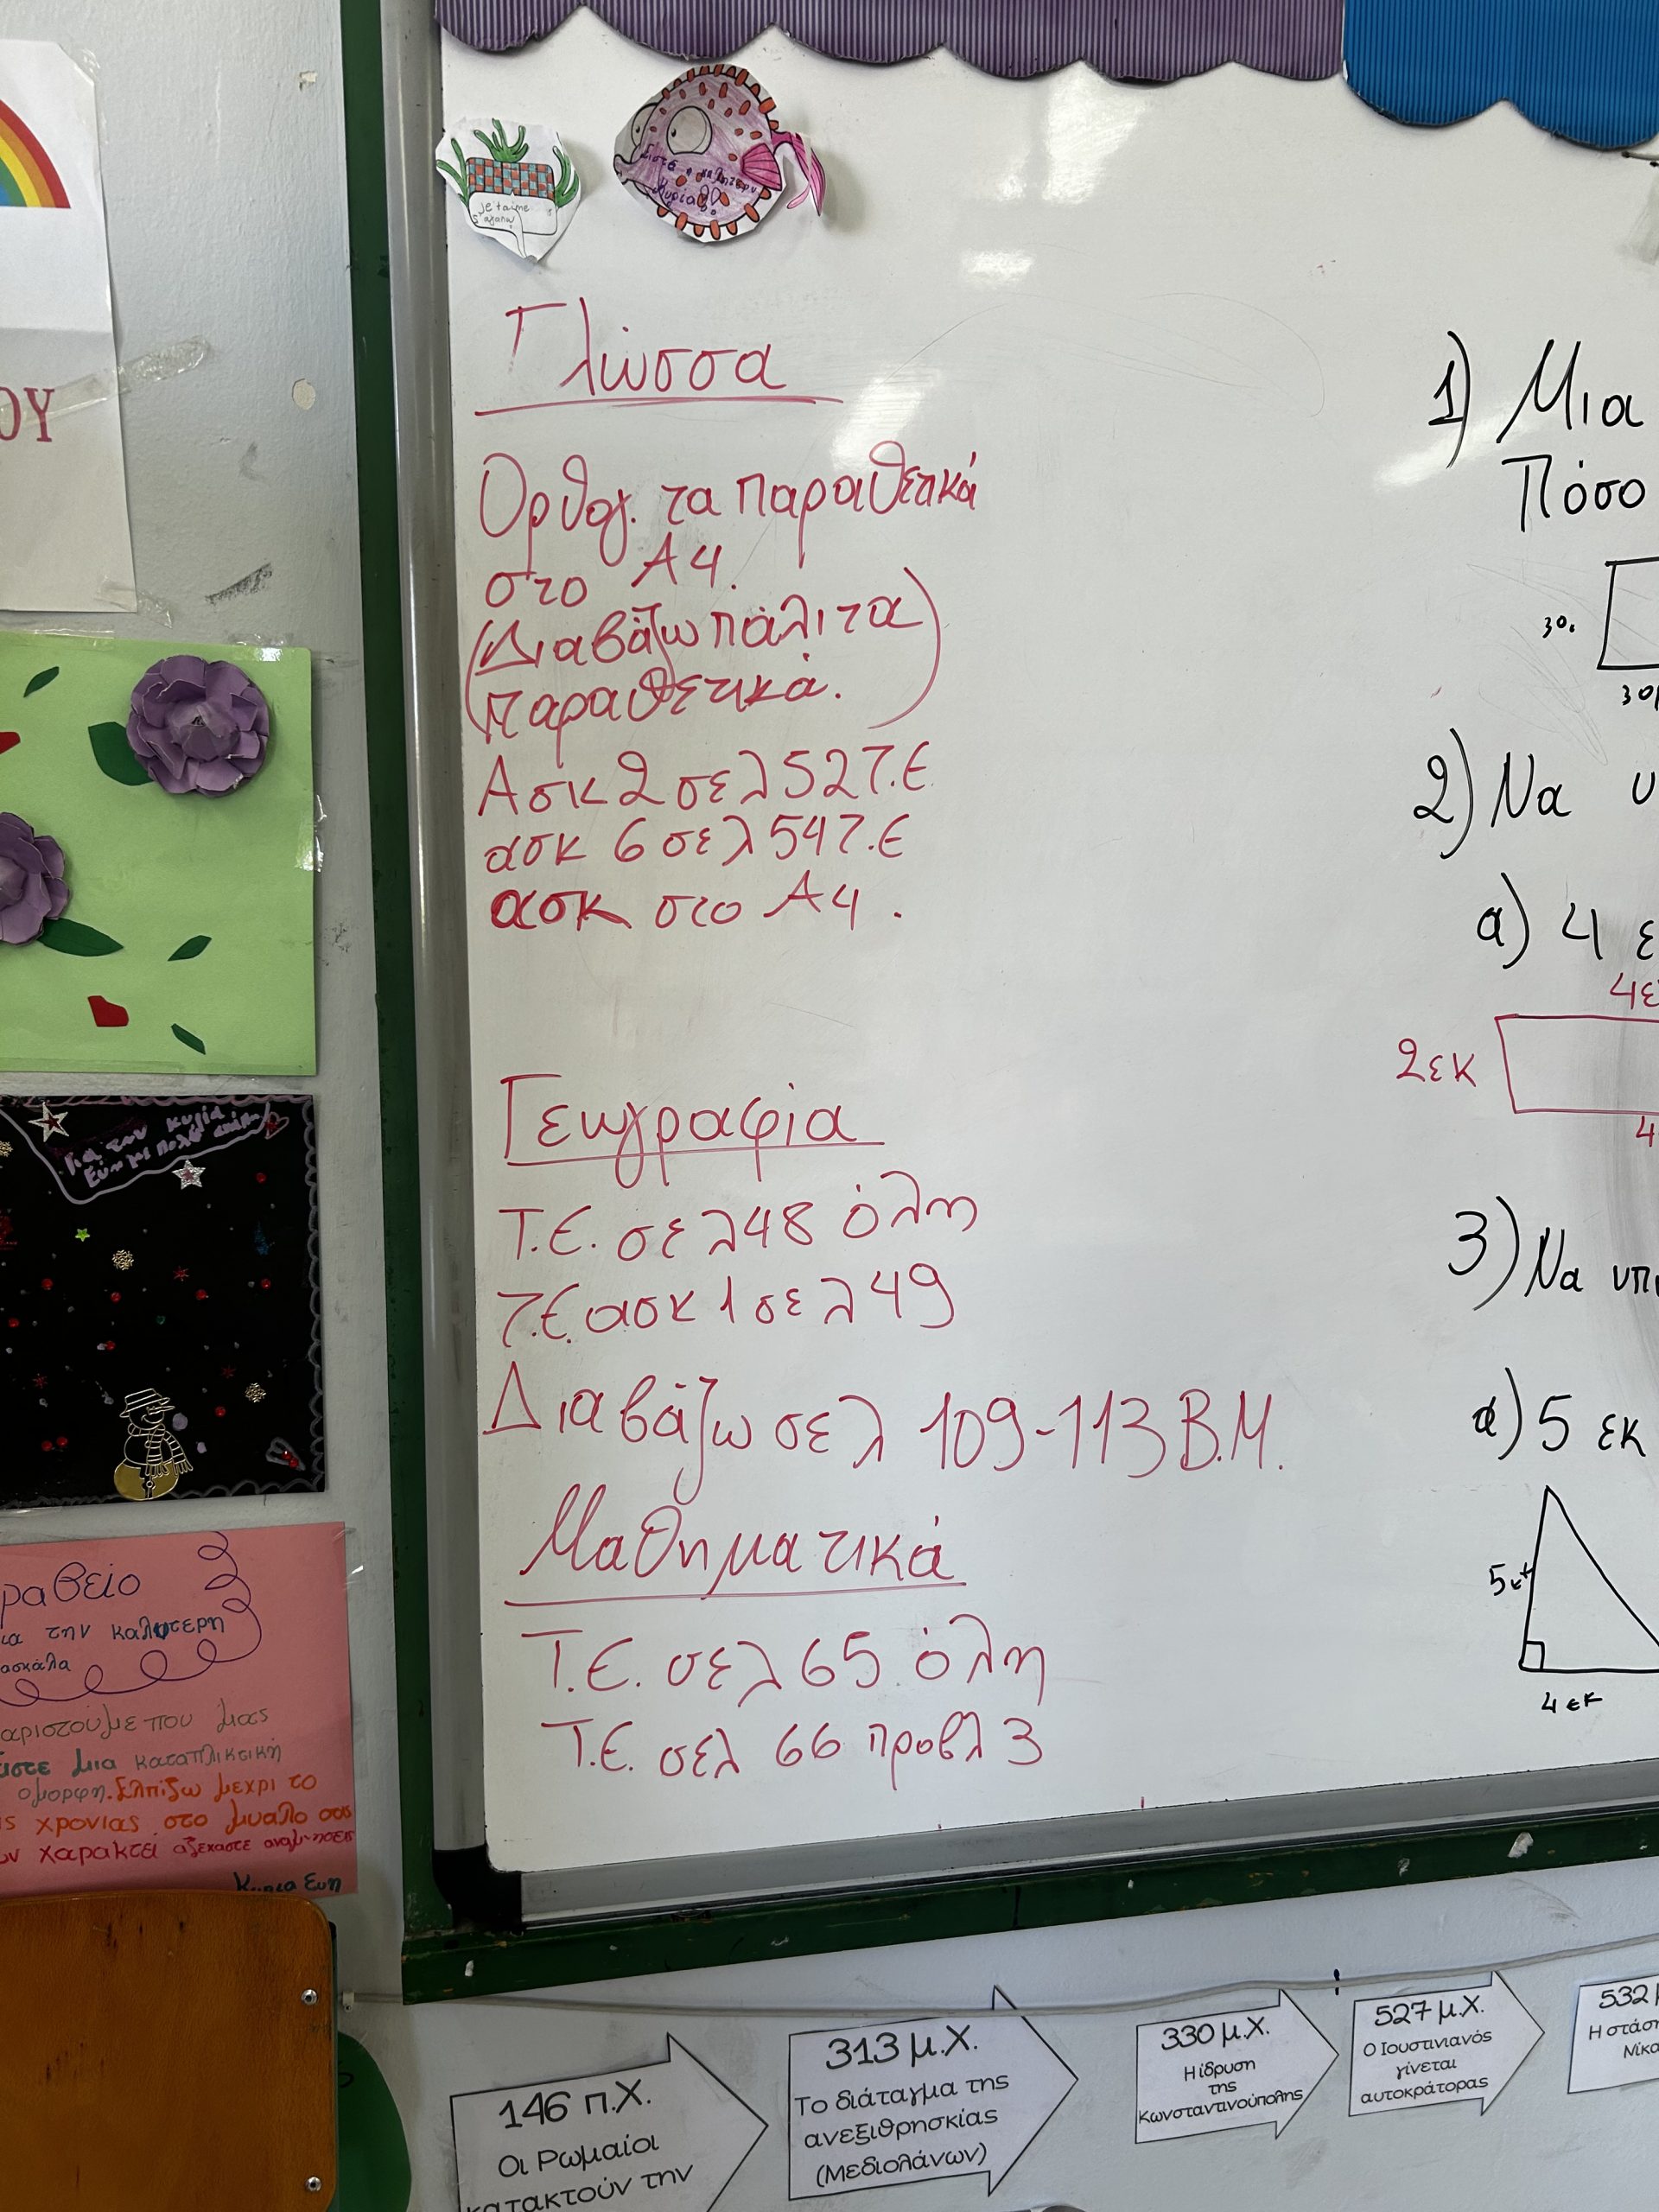 ΟΥ
je t'aime
Γλώσσα
Ορθογ. τα παραθετικά
στο Α4.
(Διαβάζω πάλι τα
παραθετικά.)
Ασκ 2 σελ 52 Τ.Ε
ασκ 6 σελ 54 Τ.Ε
ασκ στο Α4.
Γεωγραφία
Τ.Ε. σελ 48 όλη
Τ.Ε. ασκ 1 σελ 49
Διαβάζω σελ 109-113 Β.Μ.
Μαθηματικά
Τ.Ε. σελ 65 όλη
Τ.Ε. σελ 66 προβλ 3
1) Μια
Πόσο
30
30
2) Να υ
α) 4 ε
4ε
2εκ
4
3) Να υπ
α) 5 εκ
5εκ
4 εκ
Για την κυρία
ραβείο
ια την καλύτερη
ασκάλα
αριστούμε που μας
ίστε μια καταπλικτική
ομορφη. Ελπίζω μεχρι το
ς χρονίας στο μυαλο σας
ν χαρακτεί αξεχαστε αναμνησεις
Κυρια Ευη
146 π.Χ.
Οι Ρωμαίοι
κατακτούν την
313 μ.Χ.
Το διάταγμα της
ανεξιθρησκίας
(Μεδιολάνων)
330 μ.Χ.
Η ίδρυση
της
Κωνσταντινούπολης
527 μ.Χ.
Ο Ιουστινιανός
γίνεται
αυτοκράτορας
532 μ
Η στάσ
Νίκα